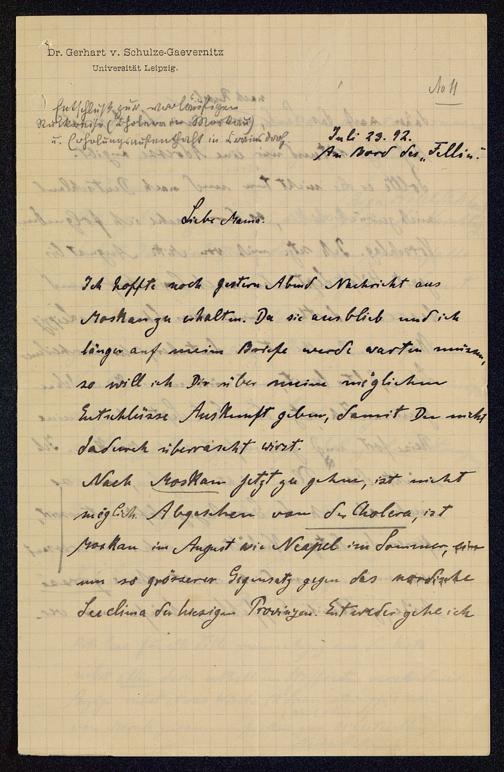 Dr. Gerhart v. Schulze-Gaevernitz
Universität Leipzig.
No 11
Entschluss zur vorläufigen
Rückreise (Cholera in Moskau)
u. Erholungsaufenthalt in Krainsdorf
Juli 23. 92.
An Bord des „Fellin".
Liebe Mama.
Ich hoffte noch gestern Abend Nachricht aus
Moskau zu erhalten. Da sie ausblieb und ich
länger auf meine Briefe werde warten müssen,
so will ich Dir über meine möglichen
Entschlüsse Auskunft geben, damit Du nicht
dadurch überrascht wirst.
Nach Moskau jetzt zu gehen, ist nicht
möglich. Abgesehen von der Cholera, ist
Moskau im August wie Neapel im Sommer, ein
um so grösserer Gegensatz gegen das nordische
Seeclima der hiesigen Provinzen. Entweder gehe ich